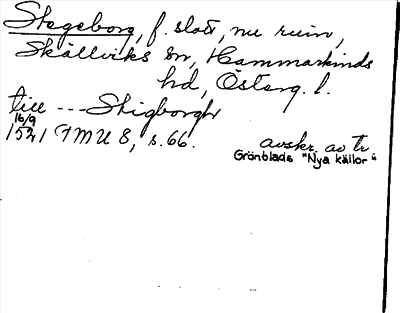 Stegeborg, f. slott, nu ruin,
Skällviks sn, Hammarkinds
hd, Österg. l.
till --- Stigborgh
16/9
1521 FMU 8, s. 66. avskr. av tr.
Grönblads "Nya källor"